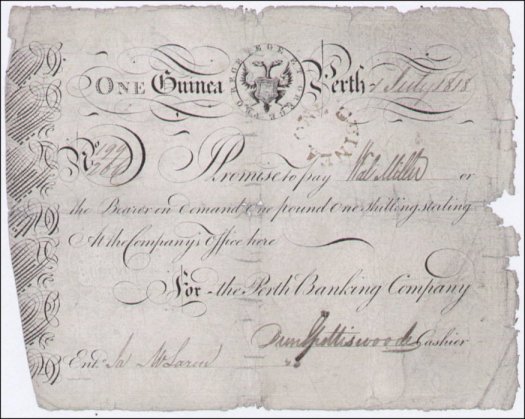 One Guinea Perth 1 July 1818
PRO REGE LEGE ET GREGE
ONE GUINEA
No
I Promise to pay Wal. Miller or
the Bearer on Demand One pound One Shilling sterling
At the Company's Office here
For the Perth Banking Company
Spottiswoode Cashier
Entd. Ja McLaren